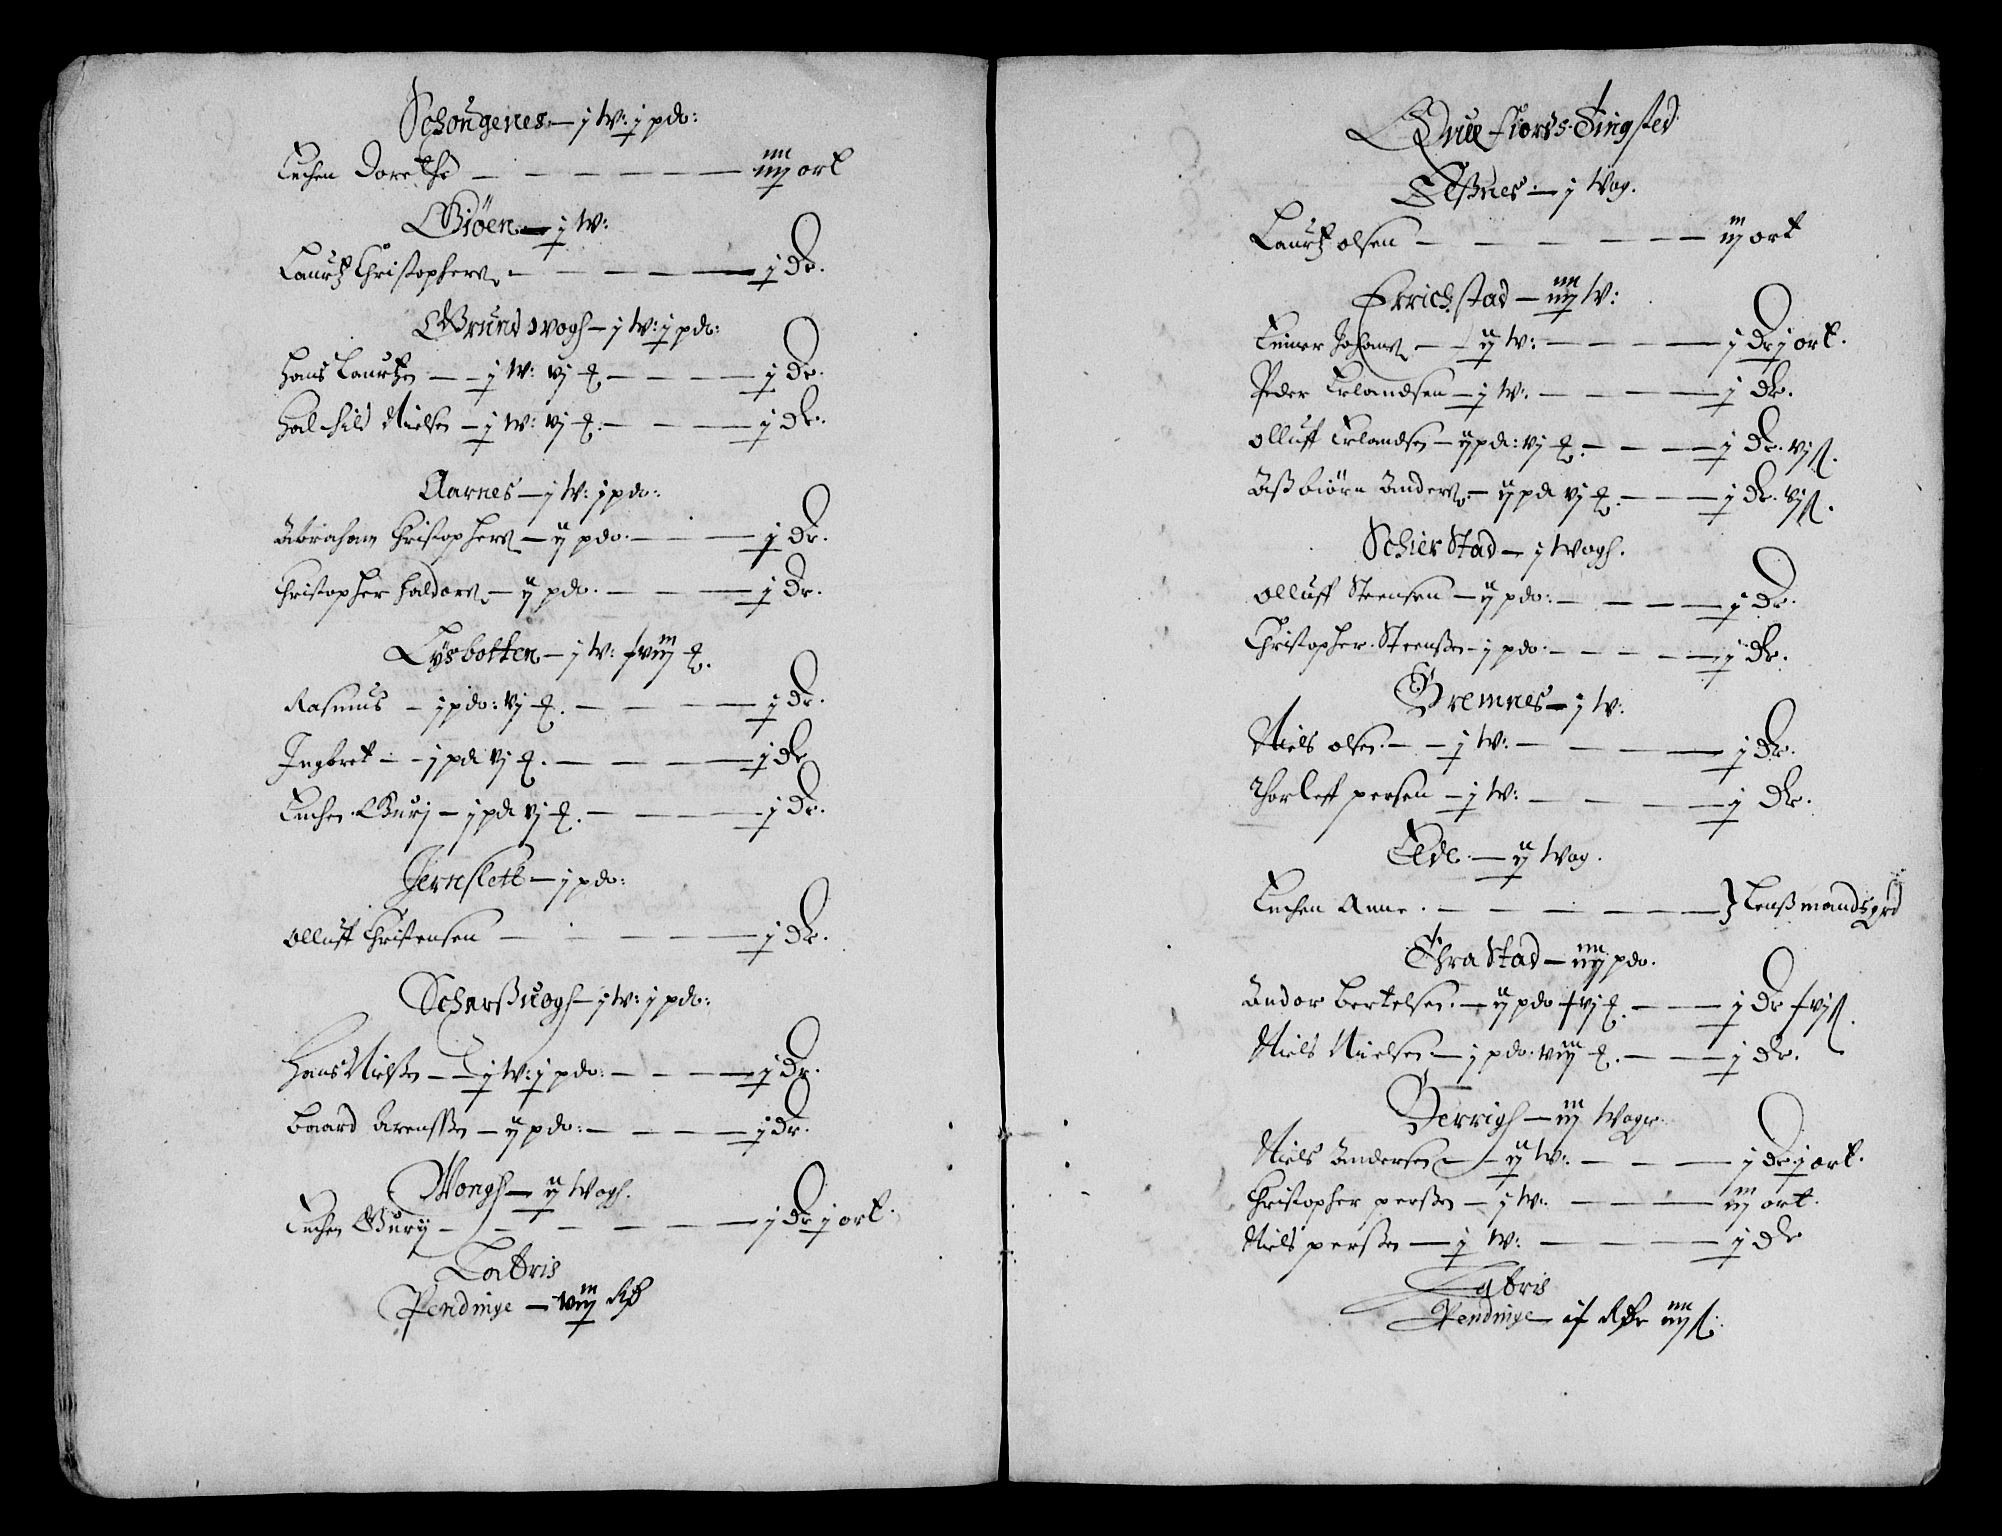 Schougenes — j W: j pdo:
Enchen Dorethe — iiij ort
Giøen — j W:
Laurtz Christophers — j Dr.
Grundsvogh — j W: j pdo:
Hans Laurtzen — j W: vj — j Dr.
Halfuld Nielsen — j W: vj — j Dr.
Aarnes — j W: j pdo:
Abraham Christophers — ij pdo. — j Dr.
Christopher Haldors — ij pdo. — j Dr.
Lysbotten — j W: viij
Rasmus — j pdo: vj — j Dr.
Ingbret — j pd vj — j Dr
Enchen Gurj — j pd vj — j Dr.
Jernslett — j pdo:
Olluff Christensen — j Dr.
Scharßuogh — j W: j pdo:
Hans Nielßen — j W: j pdo: — j Dr.
Baard Arenssen — ij pdo: — j Dr.
Wongh — ij Wogh.
Enchen Gurij — j Dr j ort.
Latris
Pendinge — viij
Que fiords Tingsted
Elßnes — j Wog.
Laurtz Olsen — iij ort
Errichstad — iiij W:
Einer Johans — ij W: — j Dr j ort.
Peder Erlandsen — j W: — j Dr.
Olluff Erlandsen — ij pdo: vj — j Dr. vj ſ.
Aßbiørn Anders — ij pd vj — j Dr. vj ſ.
Schierstad — j Wogh.
Olluff Steensen — ij pdo: — j Dr.
Christopher Steenßen — j pdo: — j Dr.
Gremnes — j W:
Niels Olsen — j W: — j Dr.
Thorleff Persen — j W: — j Dr.
Elde — ij Wog.
Enchen Anne — Lenßmandsgrd
Thrastad — iiij pdo.
Andor Bertelsen — ij pdo vj — j Dr vj ſ.
Niels Nielsen — j pdo: viij — j Dr.
Berrigh — iij Woger
Niels Andersen — ij W: — j Dr j ort.
Christopher Perßen — j W: — iij ort.
Niels Perßen — j W: — j Dr
Latris
Pendinge — iiij ſ.